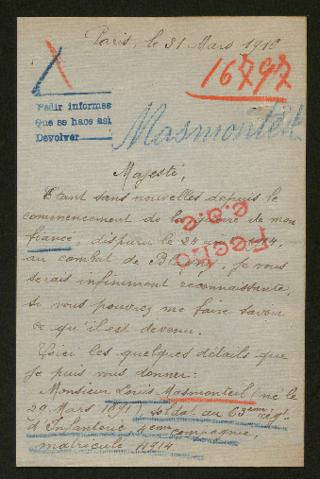 Paris, le 31 Mars 1916
16797
Pedir informes
Que se hace así
Devolver
Masmonteil
Majesté,
Etant sans nouvelles depuis le
commencement de la guerre de mon
fiancé, disparu le 24
au combat de, je vous
serais infiniment reconnaissante,
si vous pouviez me faire savoir
ce qu'il est devenu.
Voici les quelques détails que
je puis vous donner:
Monsieur Louis Masmonteil (né le
29 Mars 1891), soldat au 63ème
d'Infanterie 4ème compagnie,
matricule 4914.